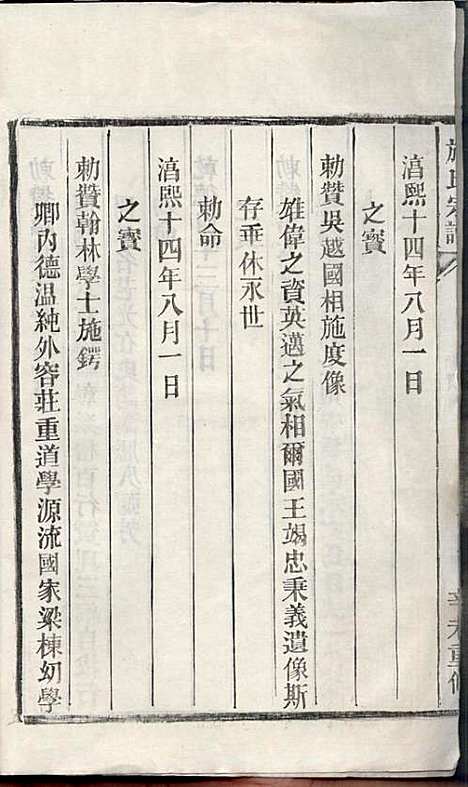 施氏宗譜
辛未重修
淳熙十四年八月一日
之寶
勅贊吳越國相施度像
雄偉之資英邁之氣相爾國王竭忠秉義遺像斯
存垂休永世
勅命
淳熙十四年八月一日
之寶
勅贊翰林學士施鍔
卿內德溫純外容莊重道學源流國家梁棟幼學